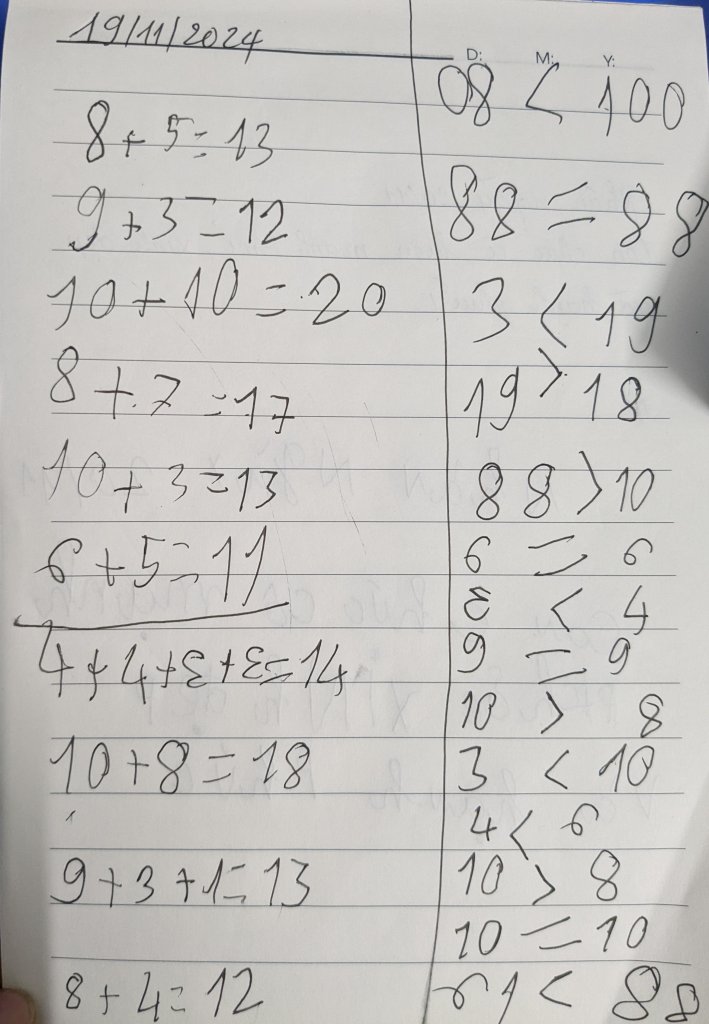 19/11/2024
8 + 5 = 13
9 + 3 = 12
10 + 10 = 20
8 + 7 = 17
10 + 3 = 13
6 + 5 = 11
4 + 4 + 3 + 3 = 14
10 + 8 = 18
9 + 3 + 1 = 13
8 + 4 = 12
D: M: Y:
08 < 100
88 = 88
3 < 19
19 > 18
88 > 10
6 = 6
3 < 4
9 = 9
10 > 8
3 < 10
4 < 6
10 > 8
10 = 10
< 88